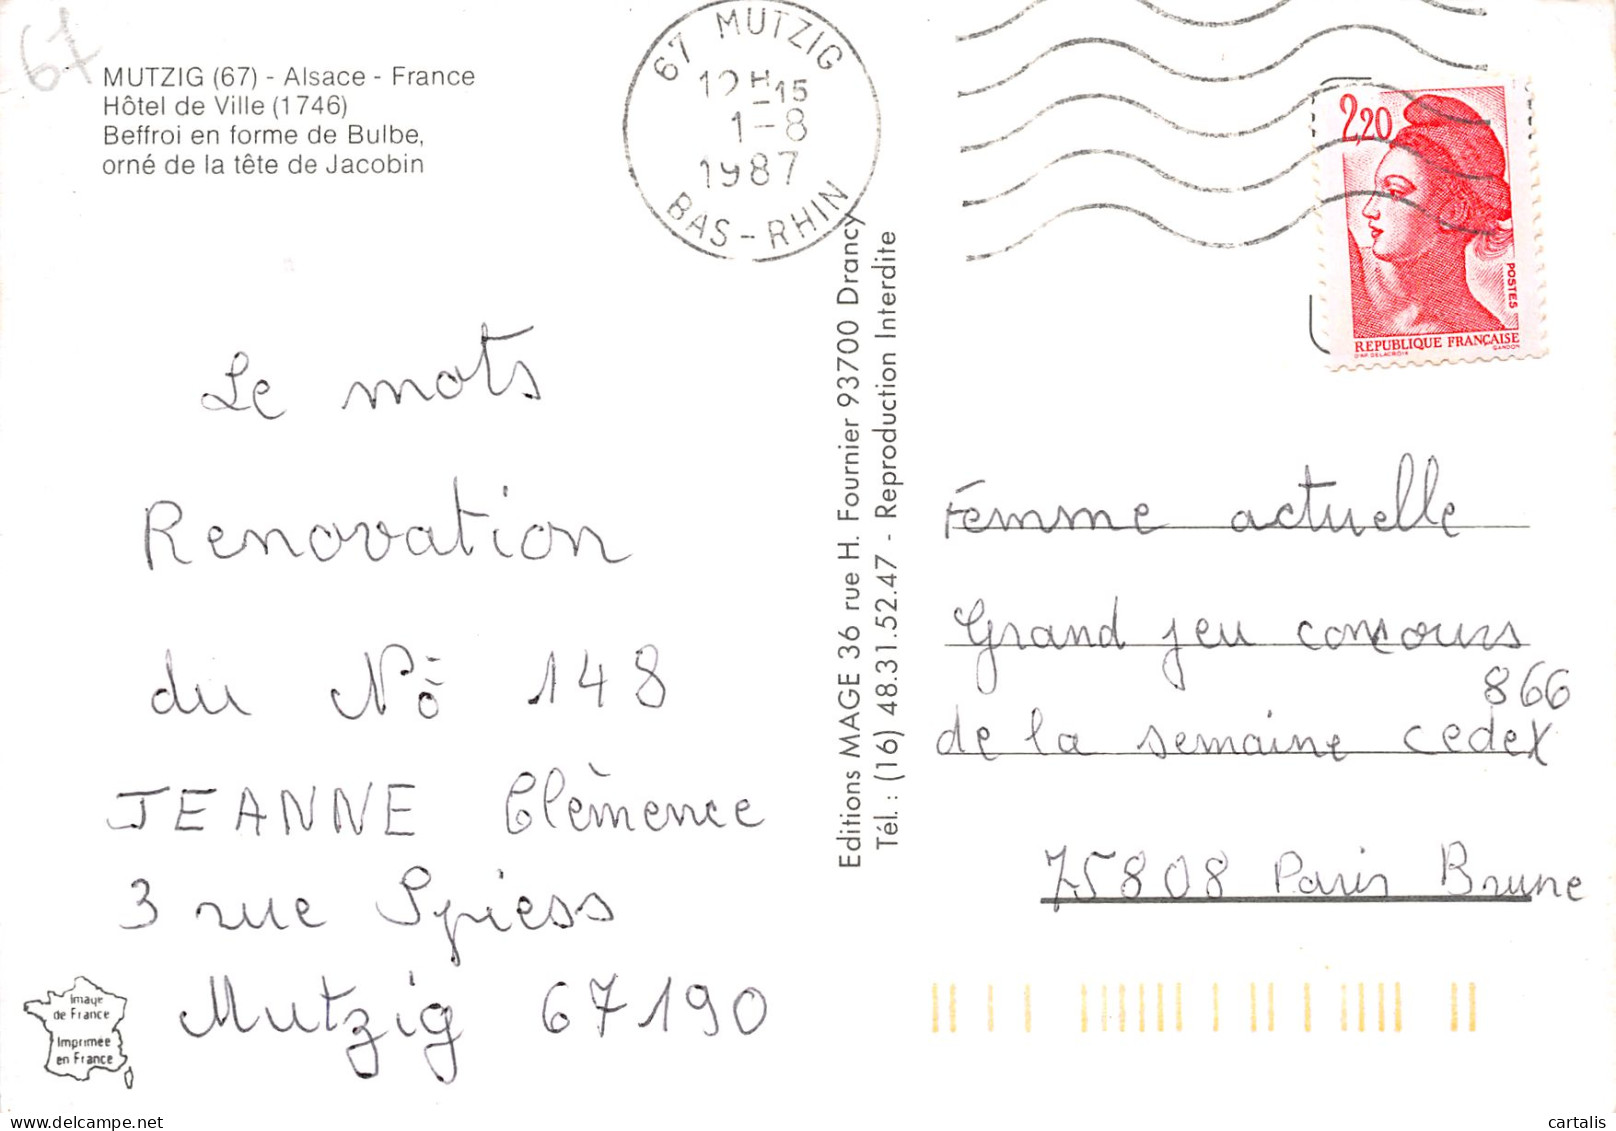 67
MUTZIG (67) - Alsace - France
Hôtel de Ville (1746)
Beffroi en forme de Bulbe,
orné de la tête de Jacobin
67 MUTZIG
12H15
1-8
1987
BAS-RHIN
2,20
POSTES
REPUBLIQUE FRANÇAISE
D'AP. DELACROIX GANDON
Le mots
Renovation
du Nº 148
JEANNE Clèmence
3 rue Spiess
Mutzig 67190
Editions MAGE 36 rue H. Fournier 93700 Drancy
Tél. : (16) 48.31.52.47 - Reproduction Interdite
Femme actuelle
Grand jeu concours
866
de la semaine cedex
75808 Paris Brune
Image
de France
Imprimée
en France
delcampe.net
cartalis